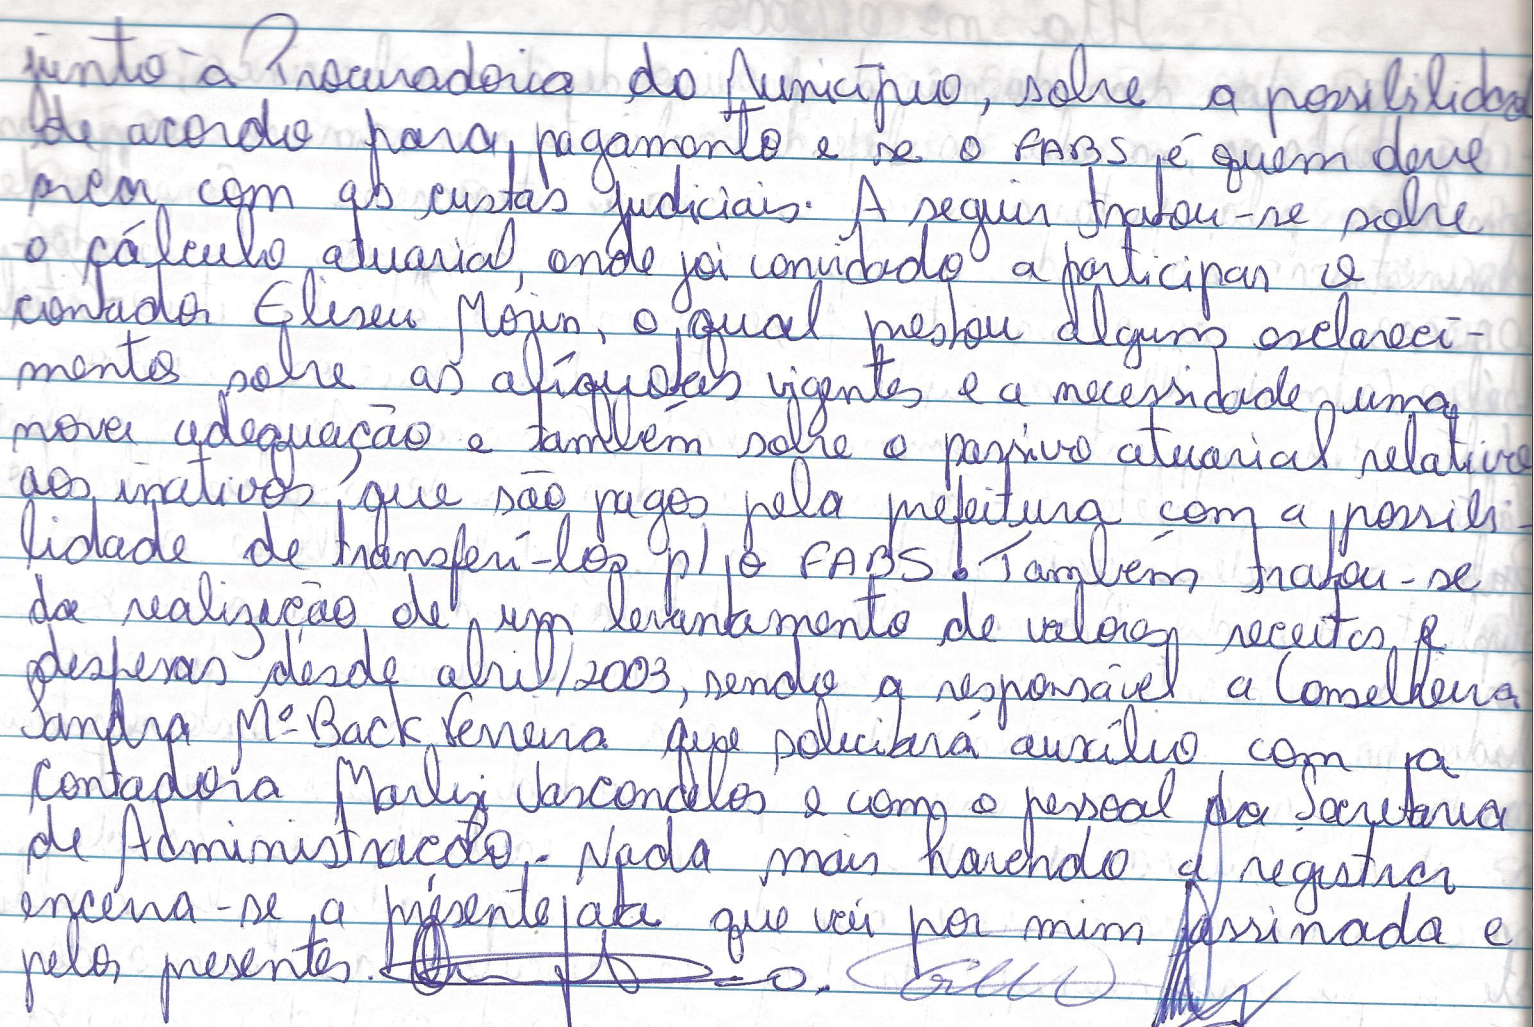 junto à Procuradoria do Município, sobre a possibilidad
de acordo para pagamento e se o FABS é quem deve
arcar com as custas judiciais. A seguir tratou-se sobre
o cálculo atuarial, onde foi convidado a participar o
contador Eliseu, o qual prestou alguns esclareci-
mentos sobre as alíquotas vigentes e a necessidade uma
nova adequação e também sobre o passivo atuarial relativo
aos inativos que são pagos pela prefeitura com a possibi-
lidade de transferí-los p/ o FABS. Também tratou-se
da realização de um levantamento de valores receitas e
despesas desde abril/2003, sendo a responsável a Conselheira
Sandra Mª Back Ferreira que solicitará auxílio com a
contadora Marlize Vasconcelos e com o pessoal da Secretaria
de Administração. Nada mais havendo a registrar
encerra-se a presente ata que vai por mim assinada e
pelos presentes.